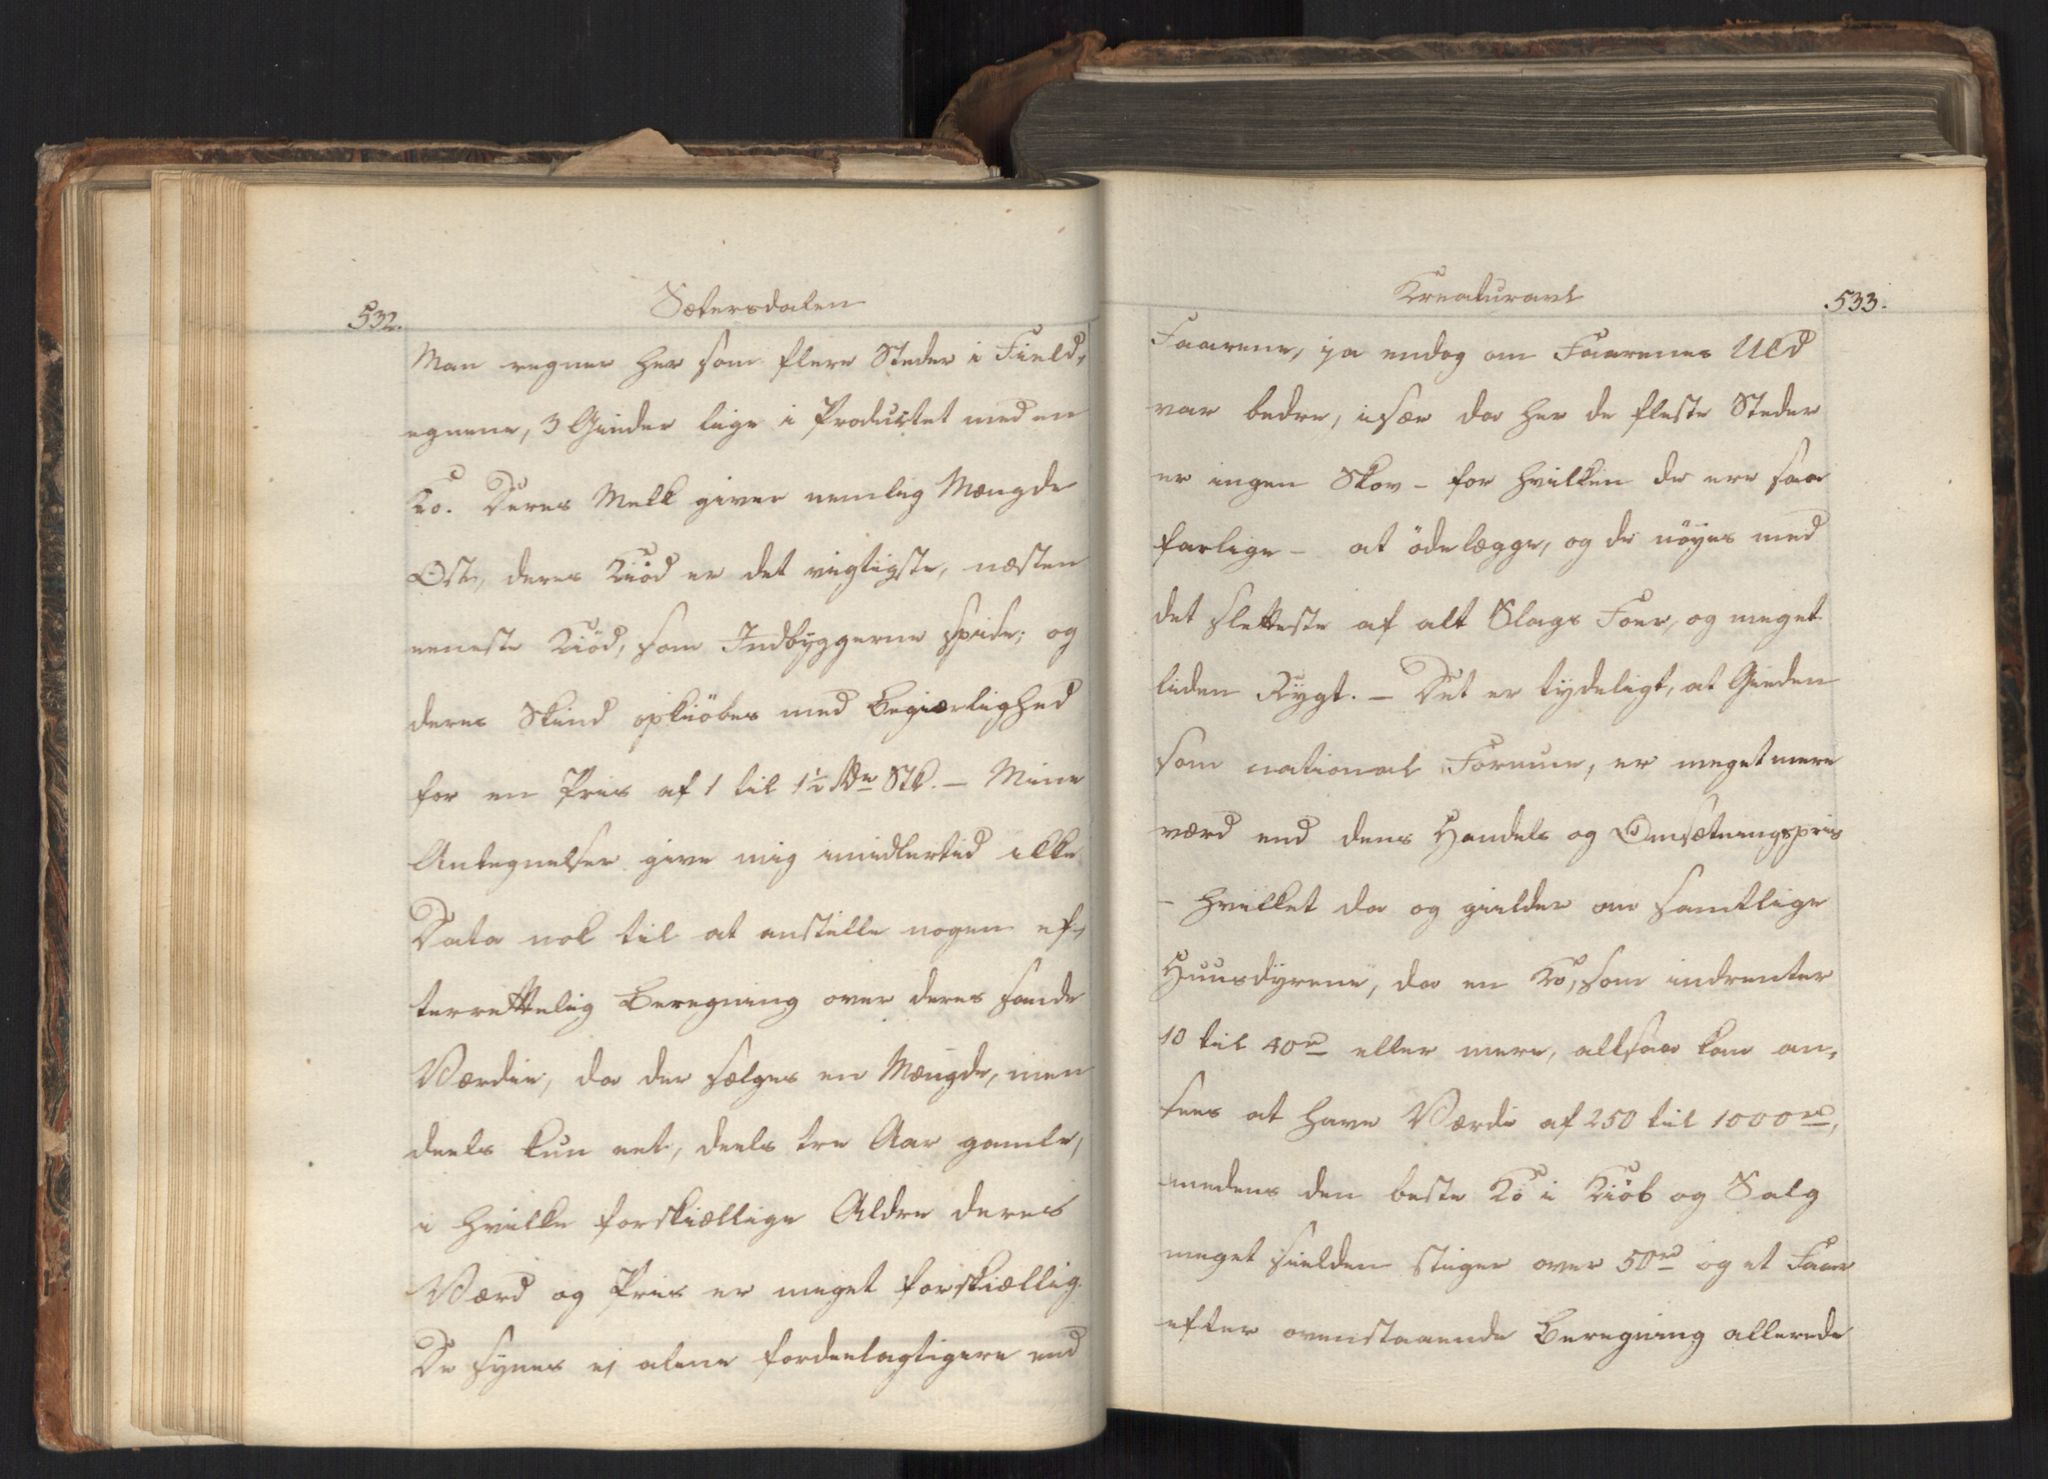 532.
Sætersdalen
Man regner her som flere Steder i Field-
egnene, 3 Gieder lige i Productet med en
Ko. Deres Melk giver nemlig Mængde
Ost, deres Kiöd er det vigtigste, næsten
eneste Kiöd, som Indbyggerne spise; og
deres Skind opkiöbes med Begiærlighed
for en Priis af 1 til 1½ Stk. — Mine
Antegnelser give mig imidlertid ikke
Data nok til at anstille nogen ef-
terrettelig Beregning over deres sande
Værdie, da der sælges en Mængde, men
deels kun eet, deels tre Aar gamle,
i hvilke forskiællige Aldre deres
Værd og Priis er meget forskiællig.
De synes ej alene fordeelagtigere end
Kreaturavl
533.
Faarene, ja endog om Faarenes Uld
var bedre, især da her de fleste Steder
er ingen Skov – for hvilken de ere saa
farlige – at ödelægge, og de nöyes med
det sletteste af alt Slags Foer, og meget
liden Rygt. – Det er tydeligt, at Gieden
som national Formue, er meget mere
værd end dens Handels og Omsætningspris
– hvilket da og gielder om samtlige
Huusdyrene, da en Ko, som indrenter
10 til 40 rd eller mere, altsaa kan an-
sees at have Værdi af 250 til 1000 rd,
medens den beste Ko i Kiöb og Salg
meget sielden stiger over 50 rd og et Faar
efter ovenstaaende Beregning allerede